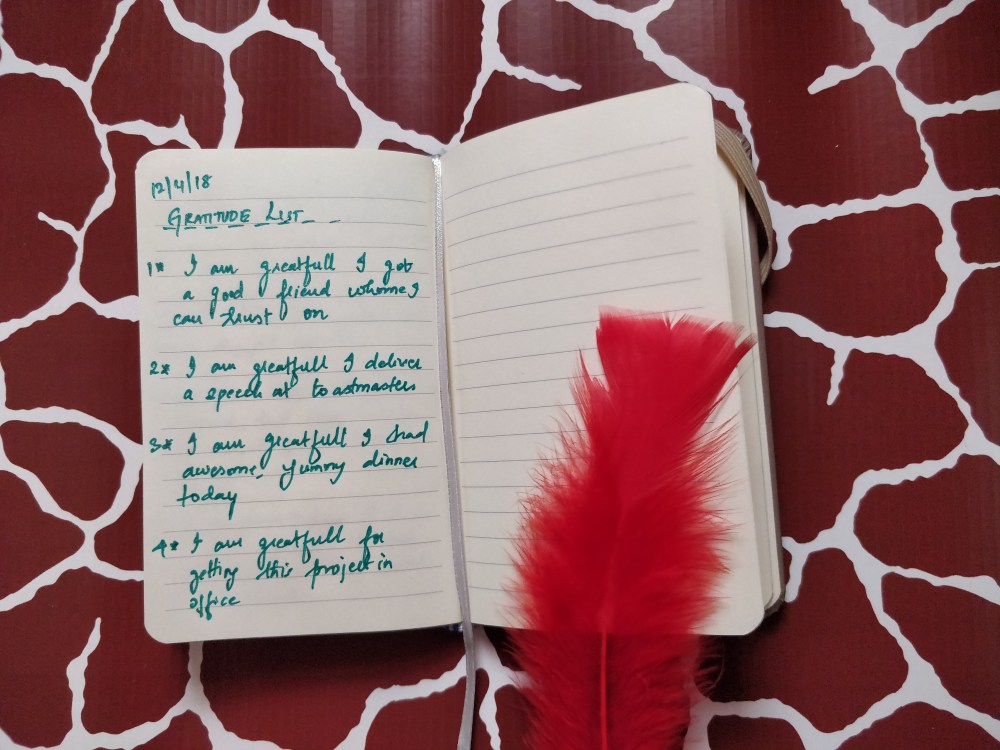 12/4/18
GRATITUDE LIST
1* I am greatfull I got
a good friend whome I
can trust on
2* I am greatfull I deliver
a speech at toastmasters
3* I am greatfull I had
awesome yummy dinner
today
4* I am greatfull for
getting this project in
office